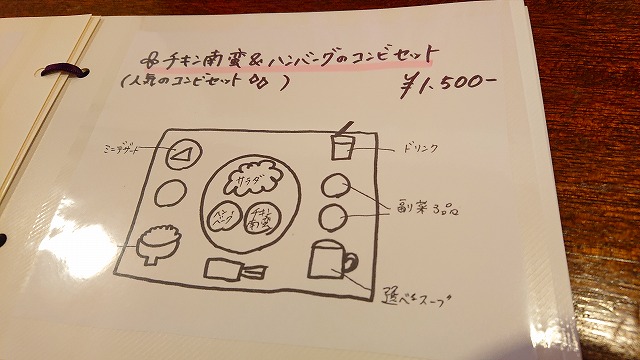 チキン南蛮&ハンバーグのコンビセット
(人気のコンビセット)
¥1,500-
ミニデザート
ドリンク
サラダ
ハンバーグ
チキン南蛮
副菜3品
選べるスープ